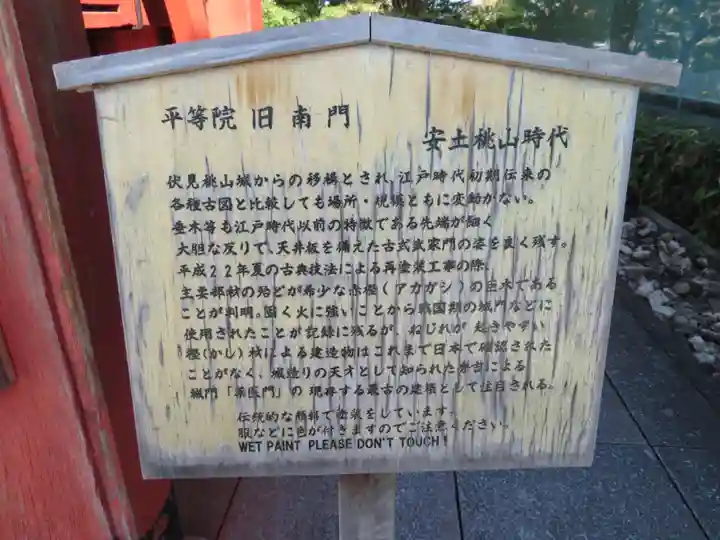 平等院 旧 南 門
安土桃山時代
伏見桃山城からの移構とされ、江戸時代初期伝来の
各種古図と比較しても場所・規模ともに変動がない。
垂木等も江戸時代以前の特徴である先端が細く
大胆な反りで、天井板を備えた古式武家門の姿を良く残す。
平成22年夏の古典技法による再塗装工事の際、
主要部材の殆どが希少な赤樫(アカガシ)の巨木である
ことが判明。固く火に強いことから戦国期の城門などに
使用されたことが記録に残るが、ねじれが起きやすい
樫(かし)材による建造物はこれまで日本で確認された
ことがなく、城造りの天才として知られた秀吉による
城門「薬医門」の現存する最古の建築として注目される。
伝統的な顔料で塗装をしています。
服などに色が付きますのでご注意ください。
WET PAINT PLEASE DON'T TOUCH!